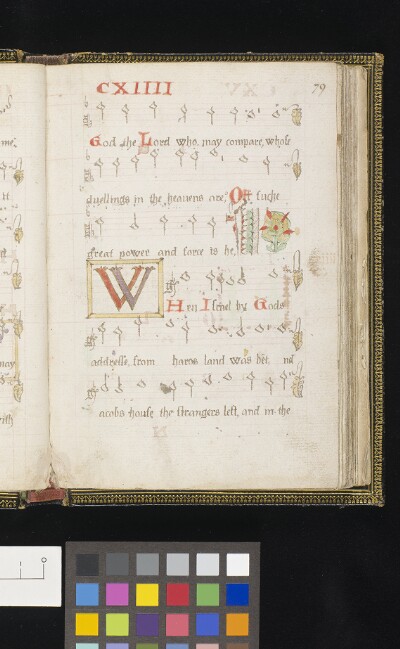 CXIIII
79
God the Lord who may compare, whose
dwellings in the heavens are, Of suche
great power and force is he,
W
Hen Israel by Gods
addresse, from haros land was bet. nd
acobs house the strangers left, and in the
me:
it
may
with